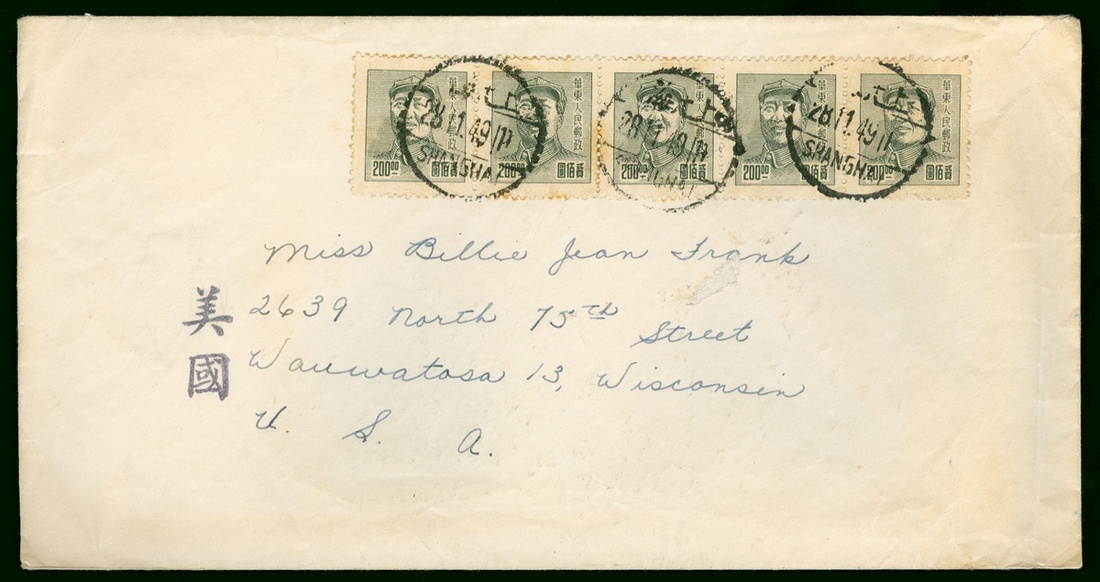 華東人民郵政 華東人民郵政 郵政 郵政 華東人民郵政
28.11.49 28.11.49 28.11.49
200.00 圓佰貳 200.00 圓佰貳 200.00 圓佰貳 200.00 圓佰貳 200.00 圓佰貳
SHANGHAI SHANGHAI
Miss Billie Jean Frank
2639 North 75th Street
Wauwatosa 13, Wisconsin
U. S. A.
美國